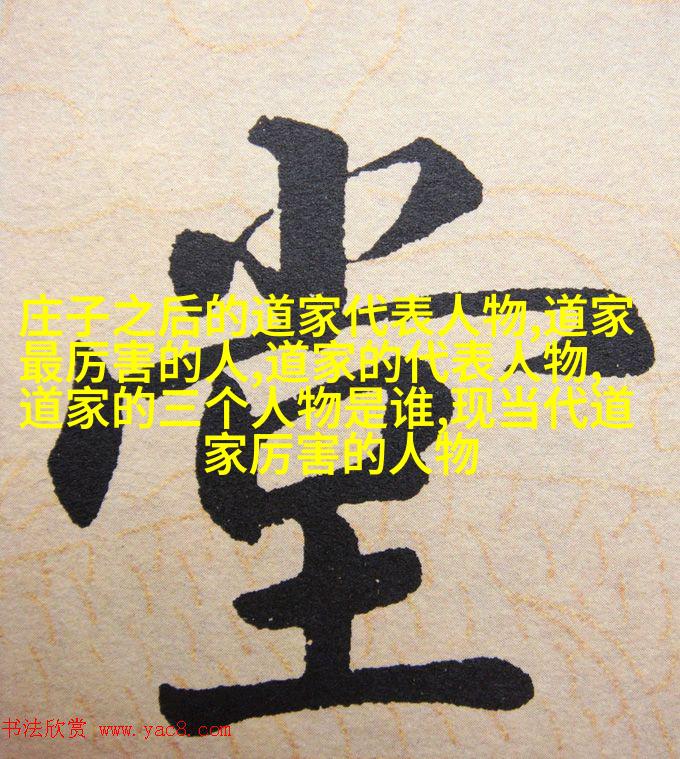 堂
庄子之后的道家代表人物,道家
最厉害的人,道家的代表人物,
道家的三个人物是谁,现当代道
家厉害的人物
书法欣赏 www.yac8.com